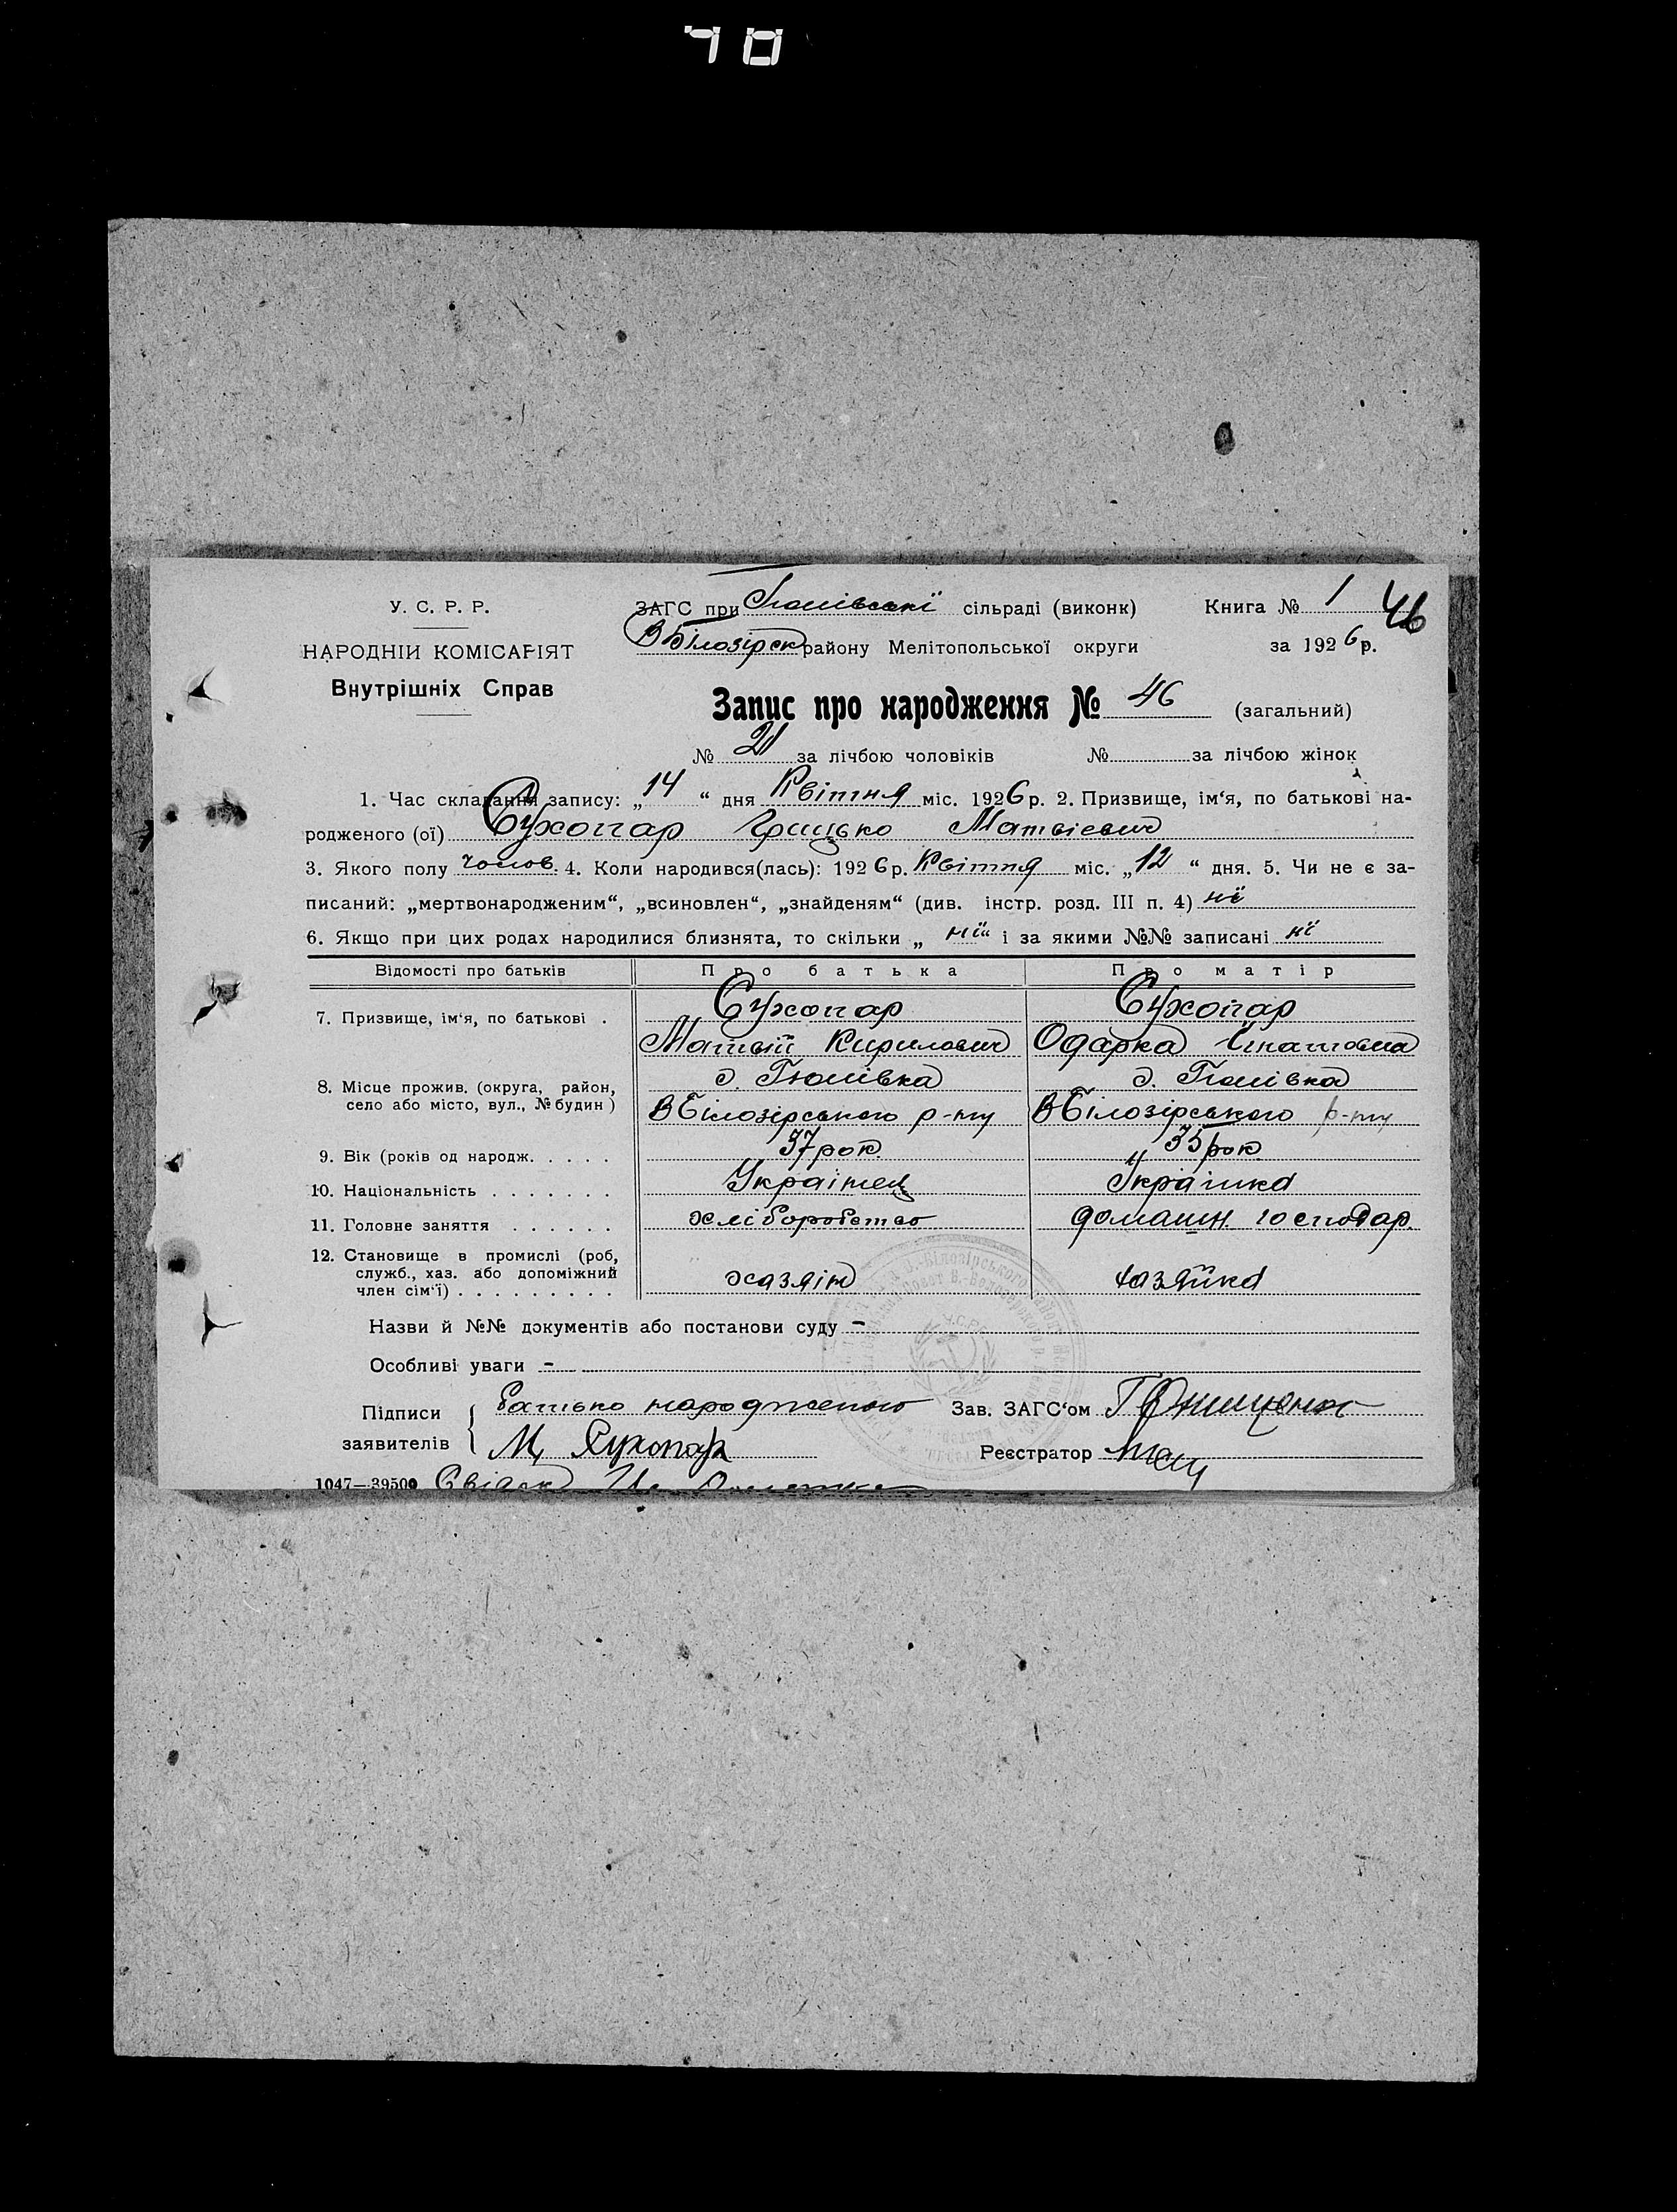 70
У. С. Р. Р.
НАРОДНІЙ КОМІСАРІЯТ
Внутрішніх Справ
ЗАГС при Гюнівські сільраді (виконк)
Книга № 1 46
ВБілозірск району Мелітопольської округи
за 1926 р.
Запис про народження № 46 (загальний)
№ 21 за лічбою чоловіків № за лічбою жінок
1. Час складання запису: „14“ дня Квітня міс. 1926 р. 2. Призвище, ім‘я, по батькові на-
родженого (ої) Сухопар Грицько Матвієвич
3. Якого полу чолов. 4. Коли народився(лась): 1926 р. Квітня міс. „12“ дня. 5. Чи не є за-
писаний: „мертвонародженим“, „всиновлен“, „знайденям“ (див. інстр. розд. III п. 4) ні
6. Якщо при цих родах народилися близнята, то скільки „ ні“ і за якими №№ записані ні
Відомості про батьків Про батька Про матір
7. Призвище, ім‘я, по батькові . Сухопар Сухопар
Матвій Кирилович Одарка Ігнатовна
8. Місце прожив. (округа, район, село або місто, вул., № будин) с. Гюнівка с. Гюнівка
ВБілозірського р-ну ВБілозірського р-ну
9. Вік (років од народж. . . . . 37 рок. 35 рок
10. Національність . . . . . . . Українец Українка
11. Головне заняття . . . . . . хліборобство домашн. господар.
12. Становище в промислі (роб,
служб., хаз. або допоміжний
член сім‘ї) . . . . . . . . . хазяін хазяйка
Назви й №№ документів або постанови суду -
Особливі уваги -
Підписи
заявителів
батько народженого
М, Сухопар
Зав. ЗАГС‘ом
Реєстратор
1047—39500